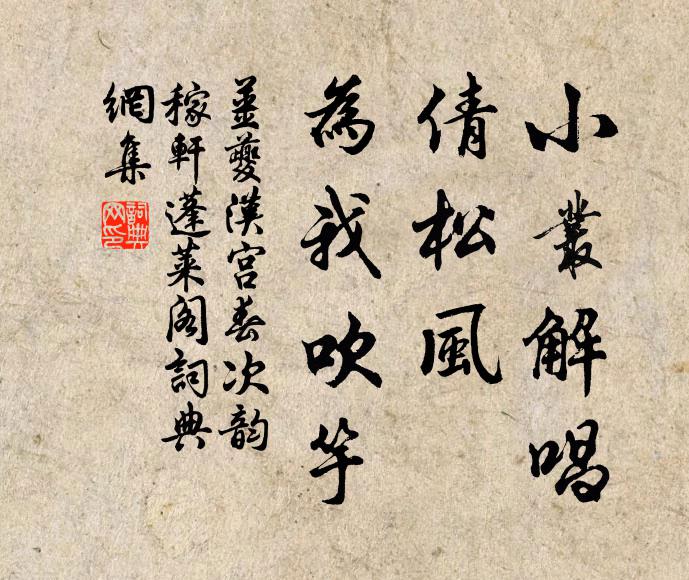 小叢解唱
倩松風
為我吹竽
姜夔漢宮春次韵
稼軒蓬萊阁詞典
網集
詞典
网印